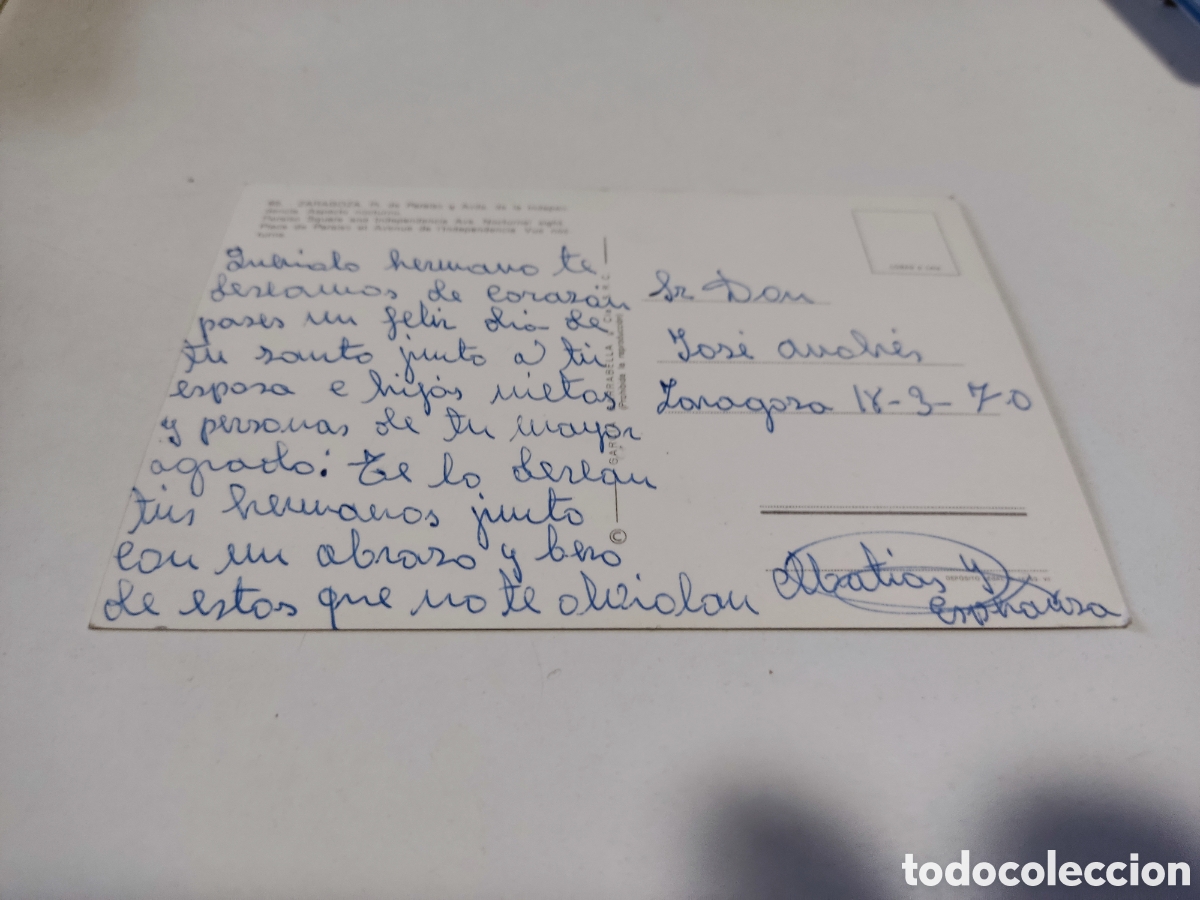 ZARAGOZA. Pl. de Paraiso y Avda. de la Indepen-
dencia. Aspecto nocturno.
Paraiso Square and Independencia Ave. Nocturnal sight.
Place de Paraiso et Avenue de l'Independencia. Vue noc-
turne.
Querido hermano te
deseamos de corazón
pases un feliz dia de
tu santo junto a tu
esposa e hijos nietos
y personas de tu mayor
agrado: Te lo desean
tus hermanos junto
con un abrazo y beso
de estos que no te olvidan
Matias y
Esperanza
© GARRABELLA y Cía. R. C.
(Prohibida la reproducción)
Sr Don
José Andrés
Zaragoza 18-3-70
DEPOSITO
todocoleccion